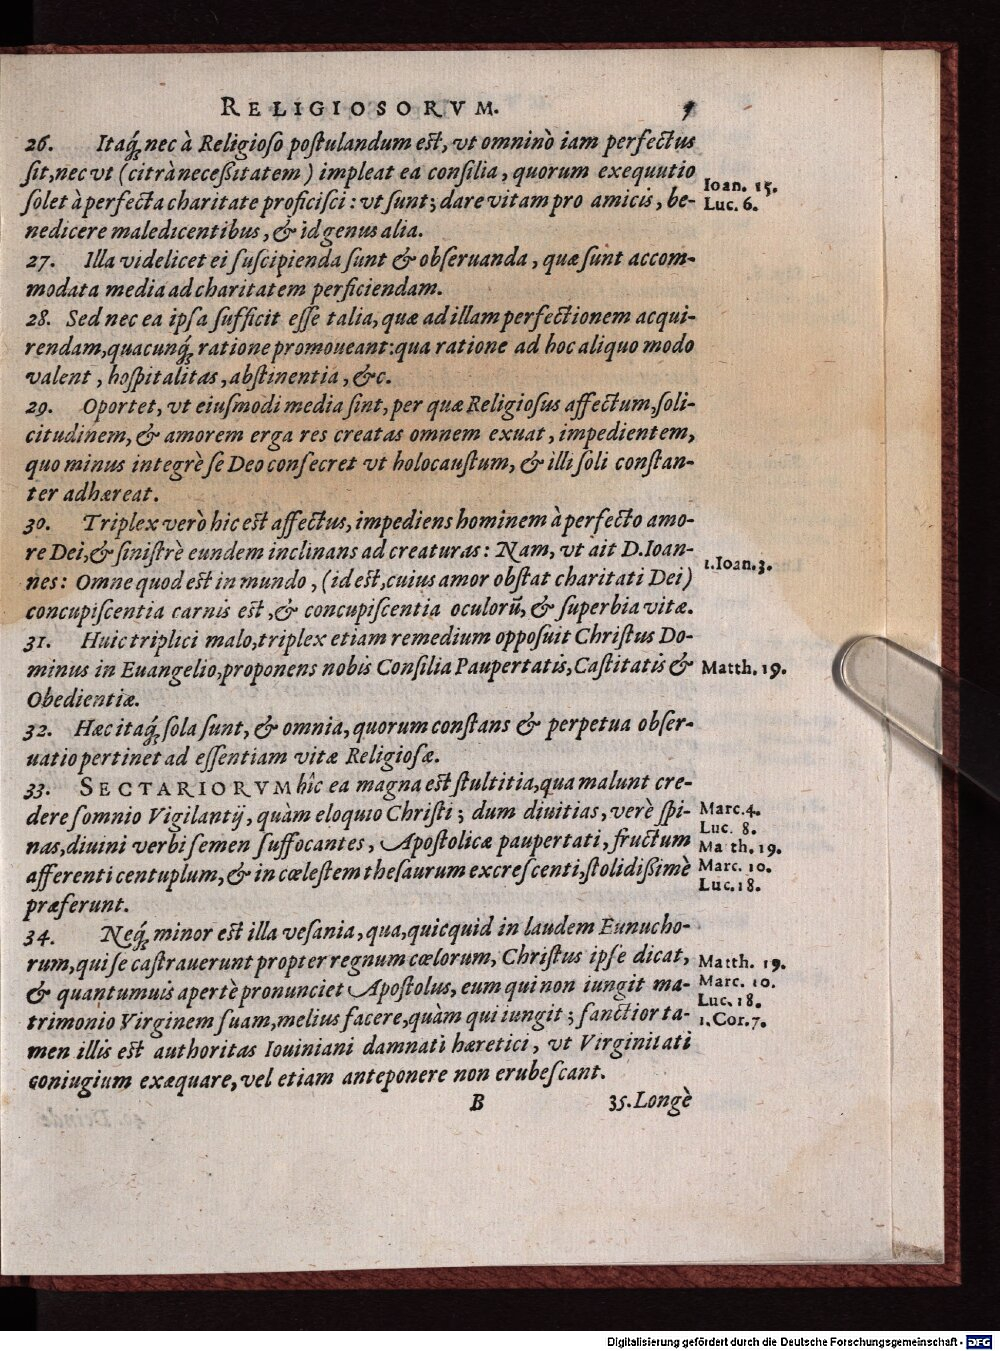 RELIGIOSORVM.
26. Itaq́; nec à Religioso postulandum est, vt omninò iam perfectus
sit, nec vt (citrà necessitatem) impleat ea consilia, quorum exequutio
Ioan. 15.
solet à perfecta charitate proficisci: vt sunt; dare vitam pro amicis, be-
Luc. 6.
nedicere maledicentibus, & id genus alia.
27. Illa videlicet ei suscipienda sunt & obseruanda, quæ sunt accom-
modata media ad charitatem perficiendam.
28. Sed nec ea ipsa sufficit esse talia, quæ ad illam perfectionem acqui-
rendam, quacunq́; ratione promoueant: qua ratione ad hoc aliquo modo
valent, hospitalitas, abstinentia, &c.
29. Oportet, vt eiusmodi media sint, per quæ Religiosus affectum, soli-
citudinem, & amorem erga res creatas omnem exuat, impedientem,
quo minus integrè se Deo consecret vt holocaustum, & illi soli constan-
ter adhæreat.
30. Triplex verò hic est affectus, impediens hominem à perfecto amo-
re Dei, & sinistrè eundem inclinans ad creaturas: Nam, vt ait D. Ioan-
1. Ioan. 3.
nes: Omne quod est in mundo, (id est, cuius amor obstat charitati Dei)
concupiscentia carnis est, & concupiscentia oculorũ, & superbia vitæ.
31. Huic triplici malo, triplex etiam remedium opposuit Christus Do-
minus in Euangelio, proponens nobis Consilia Paupertatis, Castitatis &
Matth. 19.
Obedientiæ.
32. Hæc itaq́; sola sunt, & omnia, quorum constans & perpetua obser-
uatio pertinet ad essentiam vitæ Religiosæ.
33. SECTARIORVM hîc ea magna est stultitia, qua malunt cre-
dere somnio Vigilantij, quàm eloquio Christi; dum diuitias, verè spi-
Marc. 4.
Luc. 8.
nas, diuini verbi semen suffocantes, Apostolicæ paupertati, fructum
Matth. 19.
afferenti centuplum, & in cœlestem thesaurum excrescenti, stolidissimè
Marc. 10.
Luc. 18.
præferunt.
34. Neq́; minor est illa vesania, qua, quicquid in laudem Eunucho-
rum, qui se castrauerunt propter regnum cœlorum, Christus ipse dicat,
Matth. 19.
& quantumuis apertè pronunciet Apostolus, eum qui non iungit ma-
Marc. 10.
Luc. 18.
trimonio Virginem suam, melius facere, quàm qui iungit; sanctior ta-
1. Cor. 7.
men illis est authoritas Iouiniani damnati hæretici, vt Virginitati
coniugium exæquare, vel etiam anteponere non erubescant.
B 35. Longè
Digitalisierung gefördert durch die Deutsche Forschungsgemeinschaft - DFG